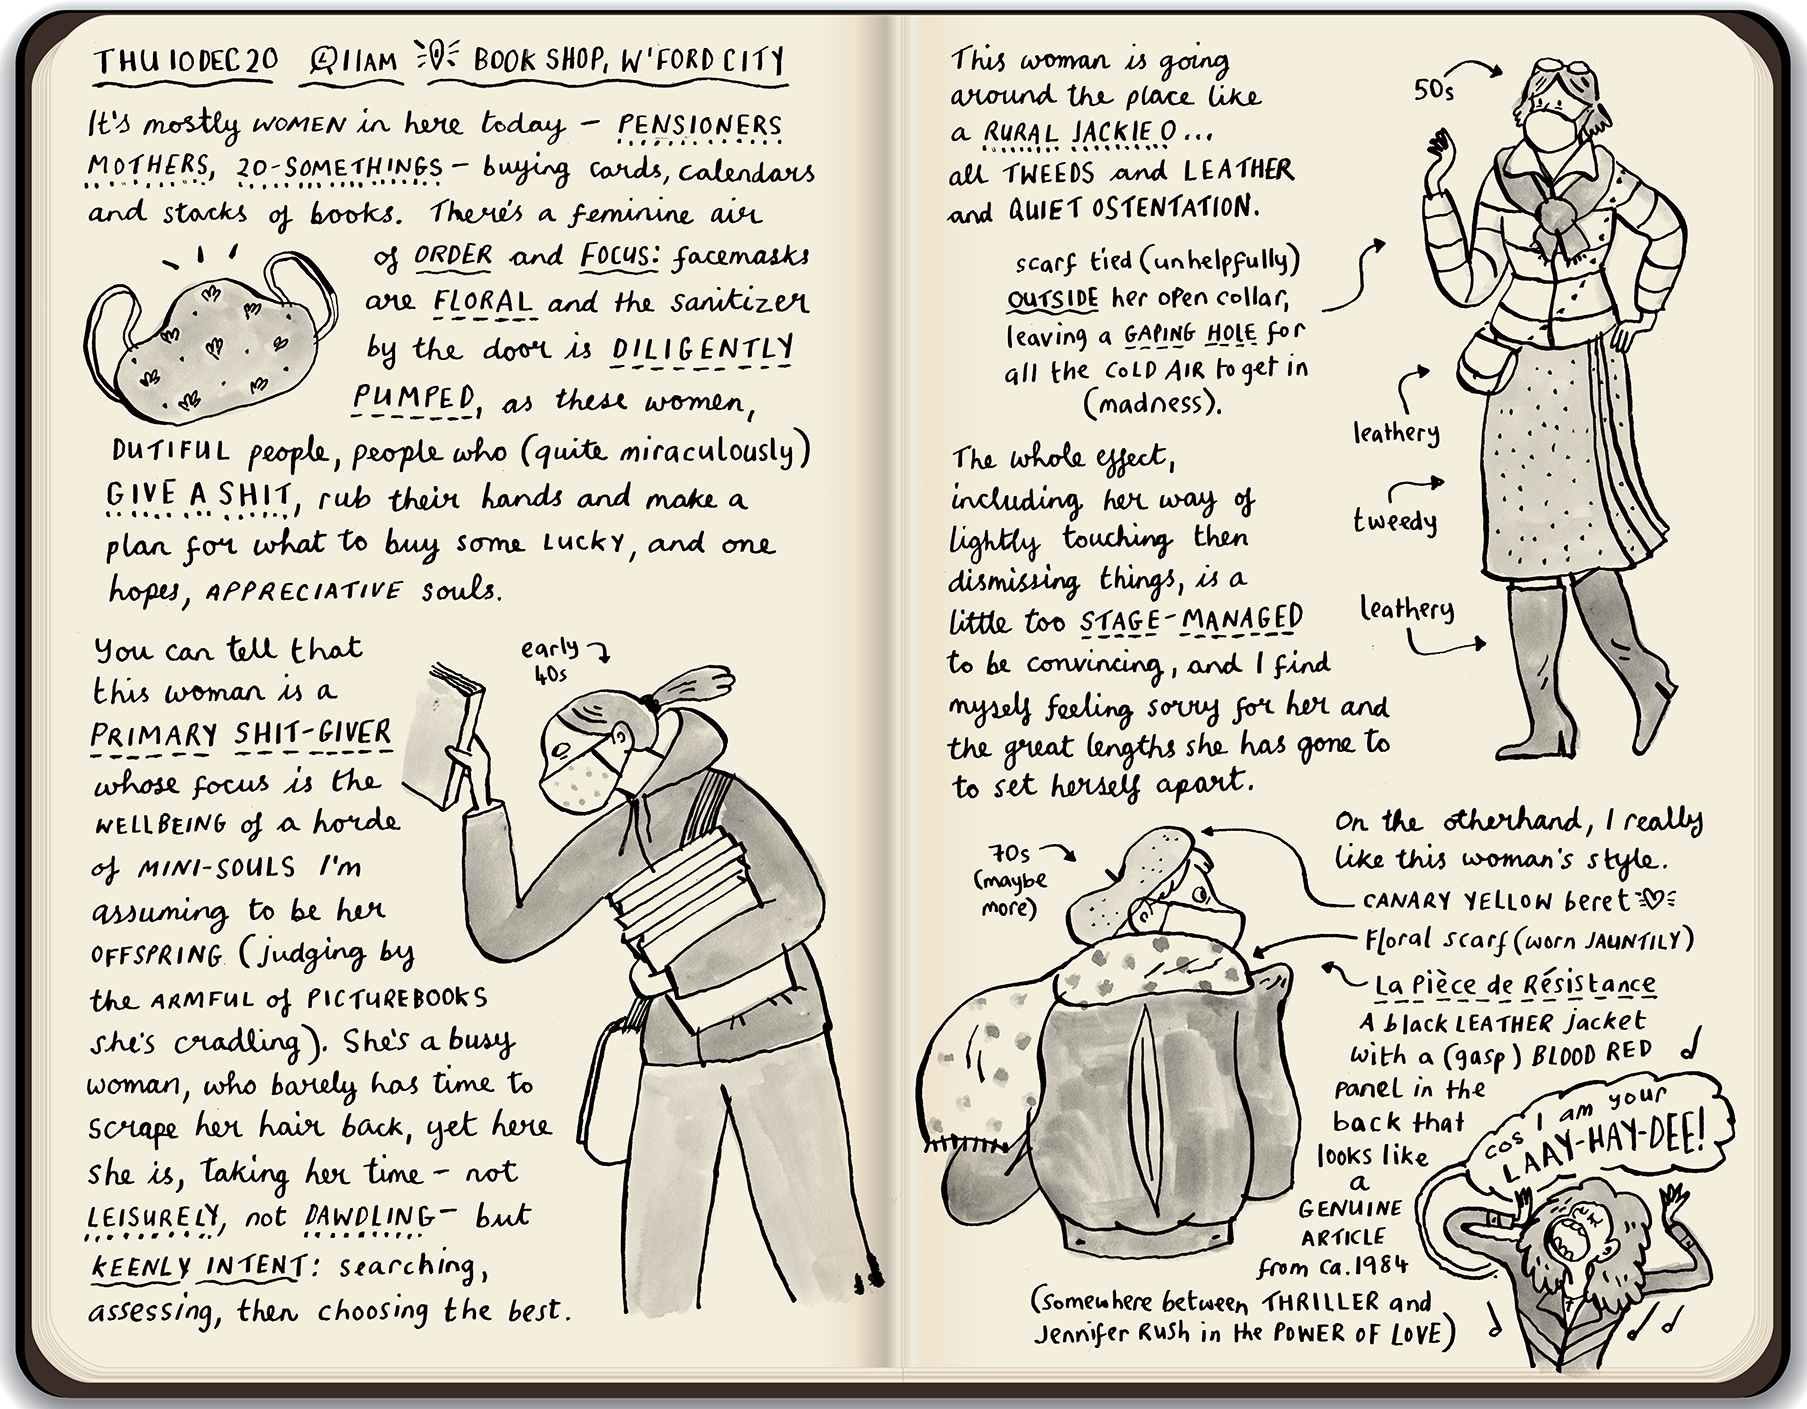 THU 10 DEC 20 @ 11AM BOOK SHOP, W'FORD CITY
It's mostly WOMEN in here today – PENSIONERS
MOTHERS, 20-SOMETHINGS – buying cards, calendars
and stacks of books. There's a feminine air
of ORDER and FOCUS: facemasks
are FLORAL and the sanitizer
by the door is DILIGENTLY
PUMPED, as these women,
DUTIFUL people, people who (quite miraculously)
GIVE A SHIT, rub their hands and make a
plan for what to buy some LUCKY, and one
hopes, APPRECIATIVE souls.
You can tell that
this woman is a
PRIMARY SHIT-GIVER
whose focus is the
WELLBEING of a horde
of MINI-SOULS I'm
assuming to be her
OFFSPRING (judging by
the ARMFUL of PICTUREBOOKS
she's cradling). She's a busy
woman, who barely has time to
scrape her hair back, yet here
she is, taking her time – not
LEISURELY, not DAWDLING – but
KEENLY INTENT: searching,
assessing, then choosing the best.
early
40s
This woman is going
around the place like
a RURAL JACKIE O...
all TWEEDS and LEATHER
and QUIET OSTENTATION.
50s
scarf tied (unhelpfully)
OUTSIDE her open collar,
leaving a GAPING HOLE for
all the COLD AIR to get in
(madness).
leathery
tweedy
leathery
The whole effect,
including her way of
lightly touching then
dismissing things, is a
little too STAGE-MANAGED
to be convincing, and I find
myself feeling sorry for her and
the great lengths she has gone to
to set herself apart.
70s
(maybe
more)
On the otherhand, I really
like this woman's style.
CANARY YELLOW beret
Floral scarf (worn JAUNTILY)
La Pièce de Résistance
A black LEATHER jacket
with a (gasp) BLOOD RED
panel in the
back that
looks like
a
GENUINE
ARTICLE
from ca.1984
(somewhere between THRILLER and
Jennifer Rush in the POWER OF LOVE)
cos I am your
LAAY-HAY-DEE!